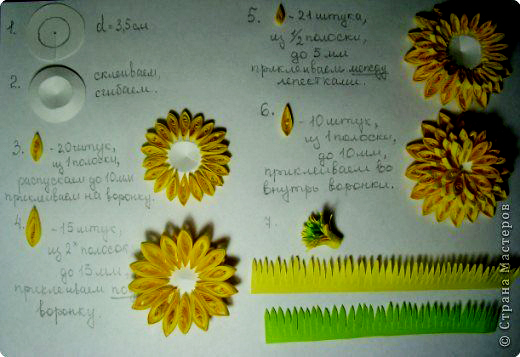 1.
d = 3,5 см
2.
склеиваем,
сгибаем.
3.
- 20 штук,
из 1 полоски,
распускаем до 10мм
приклеиваем на воронку.
4.
- 15 штук,
из 2х полосок
до 15 мм,
приклеиваем под
воронку.
5.
- 21 штука,
из 1/2 полоски,
до 5 мм
приклеиваем между
лепестками.
6.
- 10 штук,
из 1 полоски,
до 10 мм,
приклеиваем во
внутрь воронки.
7.
© Страна Мастеров